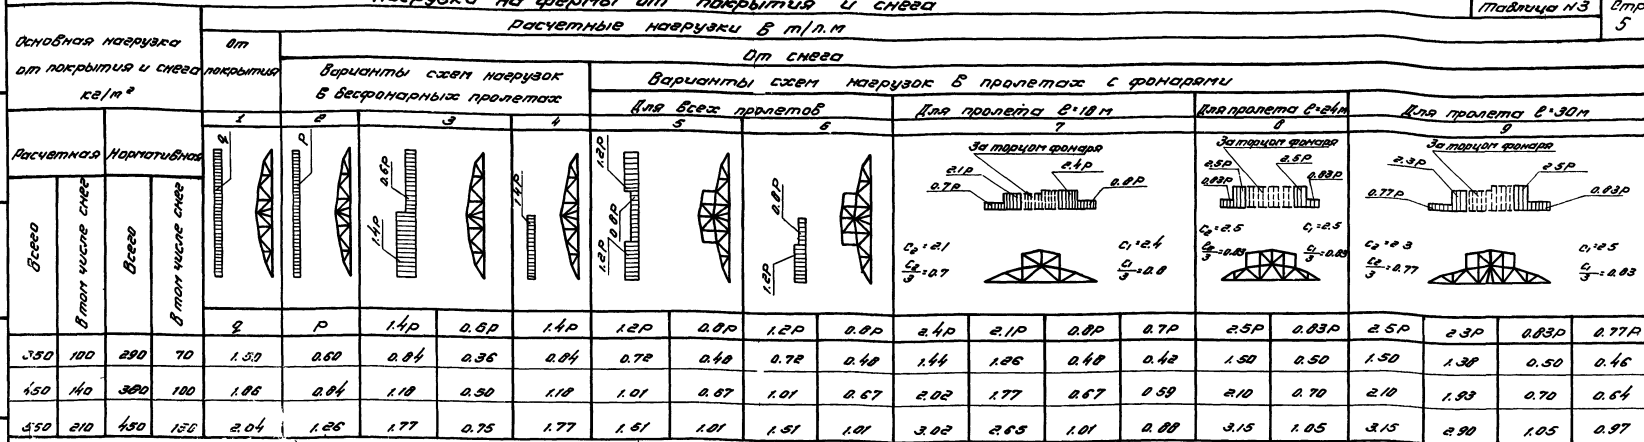 Нагрузки на фермы от покрытия и снега
Таблица N3
Стр 5
Основная нагрузка от покрытия и снега кг/м²
Расчетные нагрузки в т/п.м
От покрытия
От снега
Варианты схем нагрузок в бесфонарных пролетах
Варианты схем нагрузок в пролетах с фонарями
Для всех пролетов
Для пролета ℓ=18м
Для пролета ℓ=24м
Для пролета ℓ=30м
1 2 3 4 5 6 7 8 9
Расчетная Нормативная
Всего
В том числе снег
Всего
В том числе снег
q
P
0.6P
1.4P
1.4P
1.2P
0.8P
1.2P
0.8P
1.2P
За торцом фонаря
2.1P
2.4P
0.7P
0.8P
C₂=2.1
C₂/3=0.7
C₁=2.4
C₁/3=0.8
За торцом фонаря
2.5P
2.5P
0.83P
0.83P
C₂=2.5
C₂/3=0.83
C₁=2.5
C₁/3=0.83
За торцом фонаря
2.3P
2.5P
0.77P
0.83P
C₂=2.3
C₂/3=0.77
C₁=2.5
C₁/3=0.83
q P 1.4P 0.6P 1.4P 1.2P 0.8P 1.2P 0.8P 2.4P 2.1P 0.8P 0.7P 2.5P 0.83P 2.5P 2.3P 0.83P 0.77P
350 100 290 70 1.50 0.60 0.84 0.36 0.84 0.72 0.48 0.72 0.48 1.44 1.26 0.48 0.42 1.50 0.50 1.50 1.38 0.50 0.46
450 140 380 100 1.86 0.84 1.18 0.50 1.18 1.01 0.67 1.01 0.67 2.02 1.77 0.67 0.59 2.10 0.70 2.10 1.93 0.70 0.64
550 210 450 150 2.04 1.26 1.77 0.75 1.77 1.51 1.01 1.51 1.01 3.02 2.65 1.01 0.88 3.15 1.05 3.15 2.90 1.05 0.97